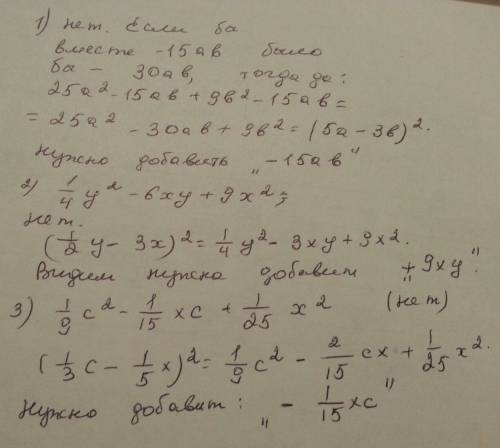 1) нет. Если ба
вместе -15ав было
ба - 30ав, тогда да:
25а² -15ав + 9в² -15ав =
= 25а² - 30ав + 9в² = (5а - 3в)².
Нужно добавить „ -15ав"
2) 1/4 y² - 6xy + 9x² ;
нет.
(1/2 y - 3x)² = 1/4 y² - 3xy + 9x².
Видим нужна добавит „ + 9xy".
3) 1/9 c² - 1/15 xc + 1/25 x² (нет)
(1/3 c - 1/5 x)² = 1/9 c² - 2/15 cx + 1/25 x².
Нужно добавит : „ - 1/15 xc"